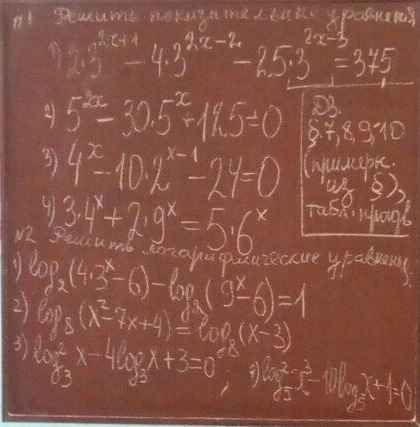 №1 Решить показательные уравнения
1) 2·3^{2x+1} - 4·3^{2x-2} - 25·3^{2x-3} = 375
2) 5^{2x} - 30·5^x + 125 = 0
3) 4^x - 10·2^{x-1} - 24 = 0
4) 3·4^x + 2·9^x = 5·6^x
ДЗ.
§ 7, 8, 9, 10
(примерн.
из §),
табл. произв
№2 Решить логарифмические уравнения
1) log₂(4·3^x - 6) - log₂(9^x - 6) = 1
2) log₈(x² - 7x + 4) = log₈(x - 3)
3) log₃² x - 4log₃ x + 3 = 0 ;